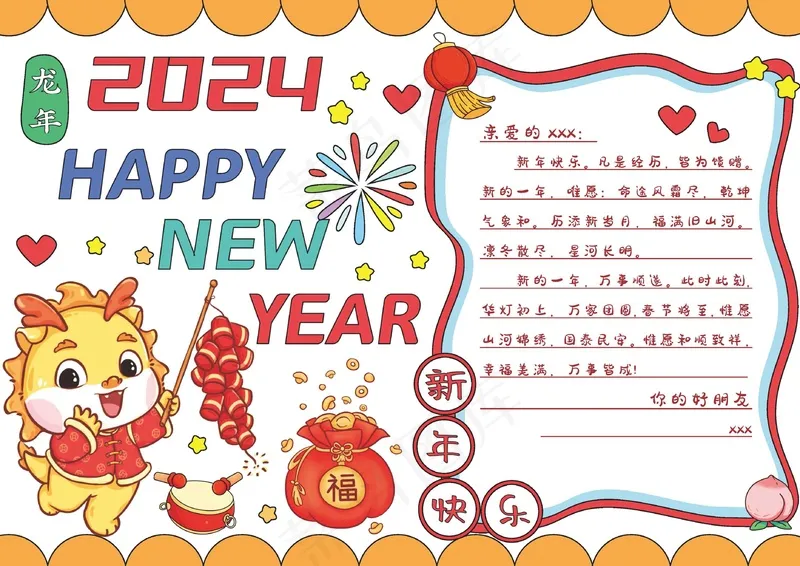 龙年
2024
HAPPY
NEW
YEAR
亲爱的 xxx:
新年快乐。凡是经历,皆为馈赠。
新的一年,唯愿:命途风霜尽,乾坤
气象和。历添新岁月,福满旧山河。
凛冬散尽,星河长明。
新的一年,万事顺遂。此时此刻,
华灯初上,万家团圆,春节将至,惟愿
山河锦绣,国泰民安。惟愿和顺致祥,
幸福美满,万事皆成!
你的好朋友
xxx
新年快乐
福